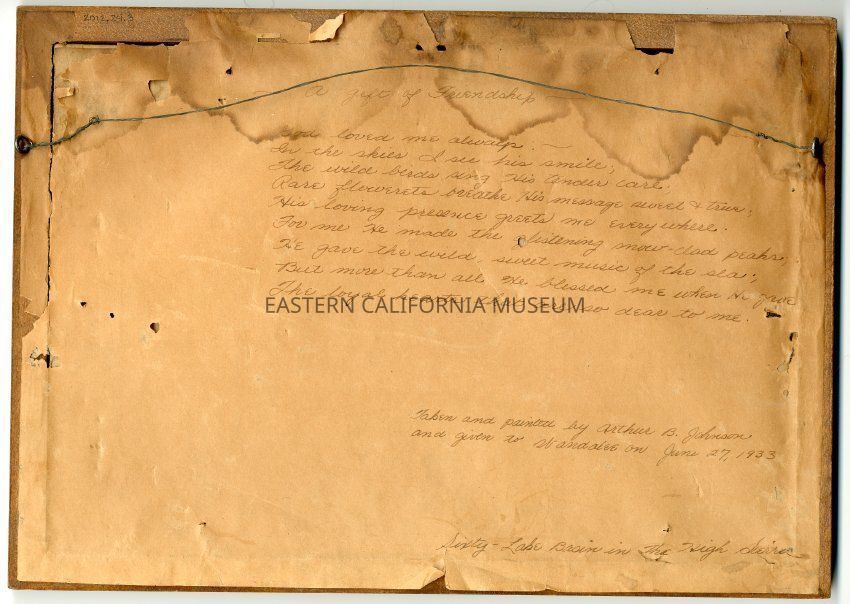 2012.24.3
— A gift of Friendship —
God loved me always. —
In the skies I see his smile;
The wild birds sing His tender care;
Rare flowerets breathe His message sweet & true;
His loving presence greets me everywhere.
For me He made the glistening snow-clad peaks;
He gave the wild, sweet music of the sea;
But more than all He blessed me when He gave
The loyal so dear to me.
EASTERN CALIFORNIA MUSEUM
Taken and painted by Arthur B. Johnson
and given to on June 27, 1933
Sixty-Lake Basin in The High Sierra